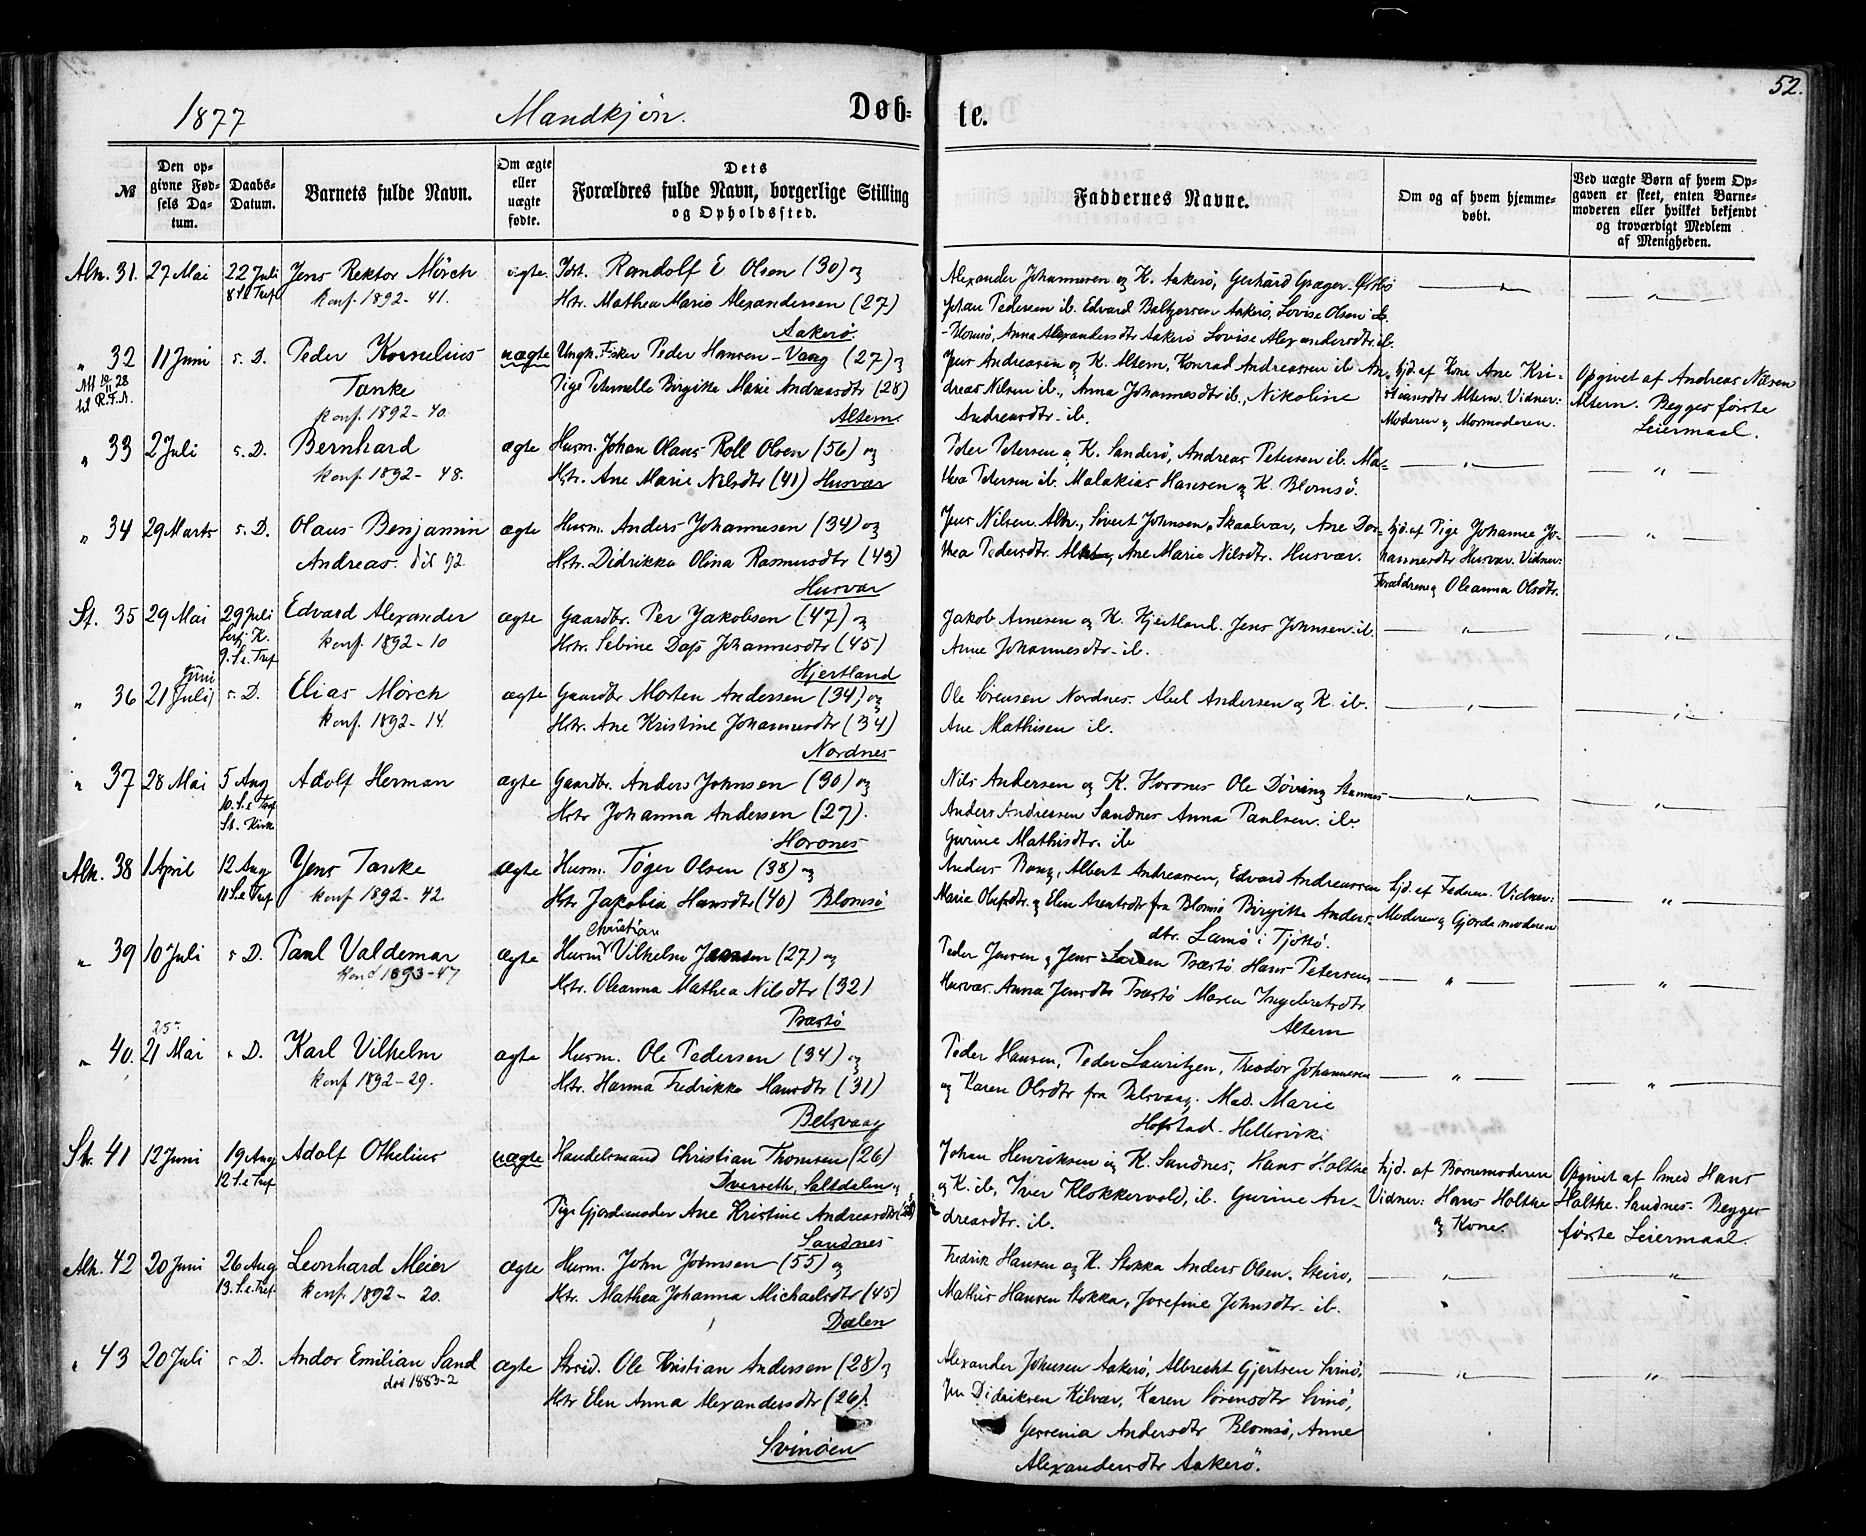 1877
Mandkjön.
Døb-
te.
52.
№
Den op-
givne Fød-
sels Da-
tum.
Daabs-
Datum.
Barnets fulde Navn.
Om ægte
eller
uægte
fødte.
Dets
Forældres fulde Navn, borgerlige Stilling
og Opholdssted.
Faddernes Navne.
Om og af hvem hjemme-
døbt.
Ved uægte Børn af hvem Op-
gaven er skeet, enten Barne-
moderen eller hvilket bekjendt
og troværdigt Medlem
af Menigheden.
Alh. 31. 27 Mai 22 Juli Jens Rektor Mörch ægte Randolf E Olsen (30) og
8 S.e. Tref konf. 1892- 41. Hstr. Mathea Marie Alexandersen (27)
Aakerö.
Alexander Johannesen og K. Aakerö, Gerhard Græger
Johan Pedersen ib. Edvard Baltzersen Aakerö, Lovise Olsen
Blomsö, Anna Alexandersdtr Aakerö Lovise Alexandersdtr. ib.
" 32 11 Juni s. D. Peder Kornelius uægte Ungk. Fisker Peder Hansen- Vaag (27) og
Tanke Pige Petrnelle Birgitte Marie Andreasdtr (28)
konf. 1892- 40. Altern.
Jens Andreasen og K. Altern, Konrad Andreassen ib. An-
dreas Nilsen ib., Anna Johannesdtr ib., Nikoline
Andreasdtr- ib.
hjd. af Kone Ane Kri-
stiansdtr Altern. Vidner:
Moderen og Mormoderen.
Opgivet af Andreas Nilsen
Altern. Begges første
Leiermaal.
" 33 2 Juli s. D. Bernhard ægte Husm. Johan Olaus Roll Olsen (56) og
konf. 1892- 48. Hstr. Ane Marie Nilsdtr (41) Husvær
Peter Petersen og K. Sanderö, Andreas Petersen ib. Ma-
thea Petersen ib. Malakias Hansen og K. Blomsö.
" 34 29 Marts s. D. Olaus Benjamin ægte Husm. Anders Johannesen (34) og
Andreas. Hstr. Didrikke Olina Rasmusdtr (43)
Husvær
Jens Nilsen Alh., Sivert Johnsen, Skaalvær, Ane Dor-
thea Pedersdtr. Ane Marie Nilsdtr. Husvær.
hjd. af Pige Johanna Jo-
hannesdtr Husvær. Vidner:
Forældrene og Oleanna Olsdtr.
St. 35 29 Mai 29 Juli Edvard Alexander ægte Gaardbr. Per Jakobsen (47) og
9. S.e. Tref konf. 1892-10 Hstr. Sebine Dass Johannesdtr (45)
Hjertland
Jakob Arnesen og K. Hjertland. Jens Johnsen ib.
Anne Johannesdtr- ib.
Juni
" 36 21 Juli s. D. Elias Mörch ægte Gaardbr Morten Andersen (34) og
konf. 1892-14. Hstr. Ane Kristine Johannesdtr (34)
Nordnes
Ole Sörensen Nordnes. Abel Andersen og K. ib.
Ane Mathisen ib.
" 37 28 Mai 5 Aug Adolf Herman ægte Gaardbr. Anders Johnsen (30) og
10. S.e Tref Hstr Johanna Andersen (27).
St. Kirke Horvnes
Nils Andersen og K. Horvnes Ole Döving Stamnes
Anders Andreasen Sandnes Anna Paulsen. ib.
Gurine Mathisdtr. ib
Alh. 38 1 April 12 Aug Jens Tanke ægte Husm. Töger Olsen (38) og
11 S.e Tref konf 1892- 42 Hstr Jakobia Hansdtr (40) Blomsö
Anders Bang, Albert Andreassen, Edvard Andreassen
Marie Olufsdtr. og Elen Arentsdtr fra Blomsö Birgitte Anders-
dtr. Lamö i Tjöttö.
hjd. af Faderen. Vidner:
Moderen og Gjordemoderen
" 39 10 Juli s D. Paul Valdemar ægte Husm Christian Vilhelm Jansen (27) og
konf 1893-47 Hstr. Oleanna Mathea Nilsdtr (32)
Præstö
Peder Jensen og Jens Larsen Præstö Hans Petersen
Husvær. Anna Jensdtr Præstö Maren Ingebretsdtr
Altern
25
" 40. 21 Mai s D. Karl Vilhelm ægte Husm. Ole Pedersen (34) og
konf 1892-29. Hstr. Hanna Fredrikke Hansdtr (31)
Belsvaag
Peder Hansen, Peder Lauritzen, Theodor Johannesen
og Karen Olsdtr fra Belsvaag. Mad. Marie
Hofstad- Hellesvik
St. 41 12 Juni 19 Aug Adolf Othelius uægte Handelsmand Christian Thomsen (26)
12 S.e Tref Dverseth, Saltdalen og
Pige Gjordemoder Ane Kristine Andreasdtr
Sandnes
Johan Henriksen og K. Sandnes, Hans Holthe
og K. ib, Iver Klokkervold, ib. Gurine An-
dreasdtr. ib.
hjd. af Barnemoderen
Vidner: Hans Holthe
og Kone.
Opgivet af Smed Hans
Holthe. Sandnes. Begges
første Leiermaal.
Alh. 42 20 Juni 26 Aug Leonhard Meier ægte Husm. John Johnsen (55) og
13. S.e. Tref. konf. 1892- 20. Hstr. Mathea Johanna Michaelsdtr (45)
Dalen
Fredrik Hansen og K. Stokka Anders Olsen. Steiro,
Mathis Hansen Stokka, Josefine Johnsdtr- ib.
" 43 20 Juli s D. Andor Emilian Sand ægte Ole Kristian Andersen (28) og
död 1883-2 Hstr Elen Anna Alexandersdtr (26).
Svinöen
Alexander Johnsen Aakerö, Albrecht Gjertsen Svinö,
Didriksen Kilvær, Karen Sörensdtr Svinö,
Andersdtr Blomsö, Anne
Alexandersdtr Aakerö.